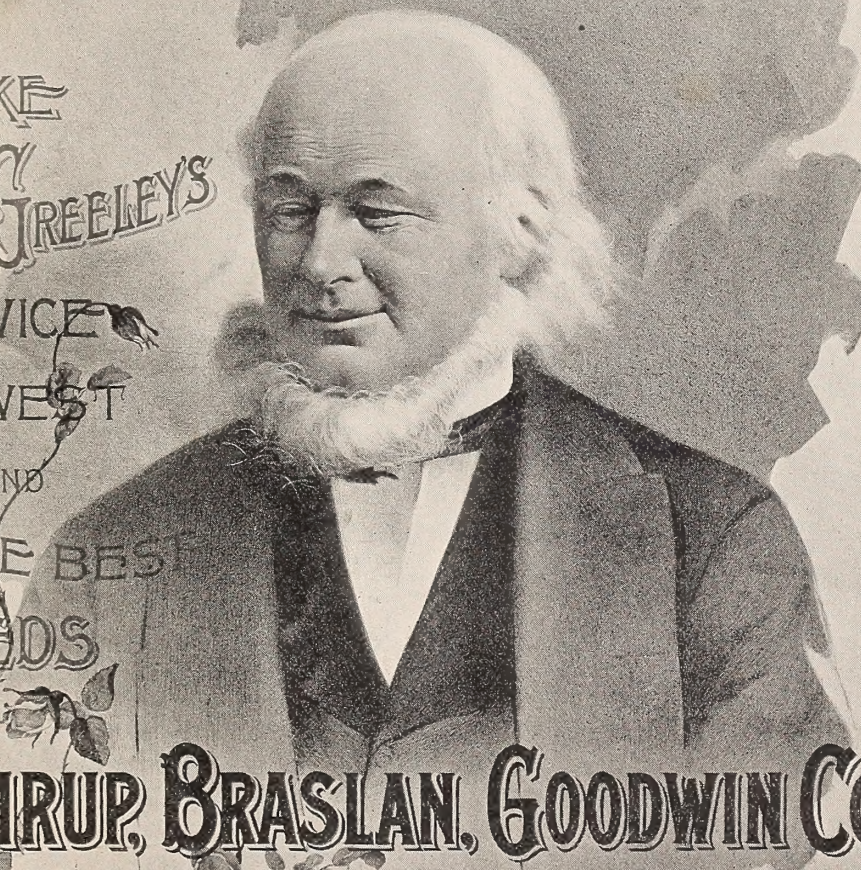 KE
GREELEY'S
VICE
WEST
ND
E BEST
EDS
HRUP, BRASLAN, GOODWIN CO